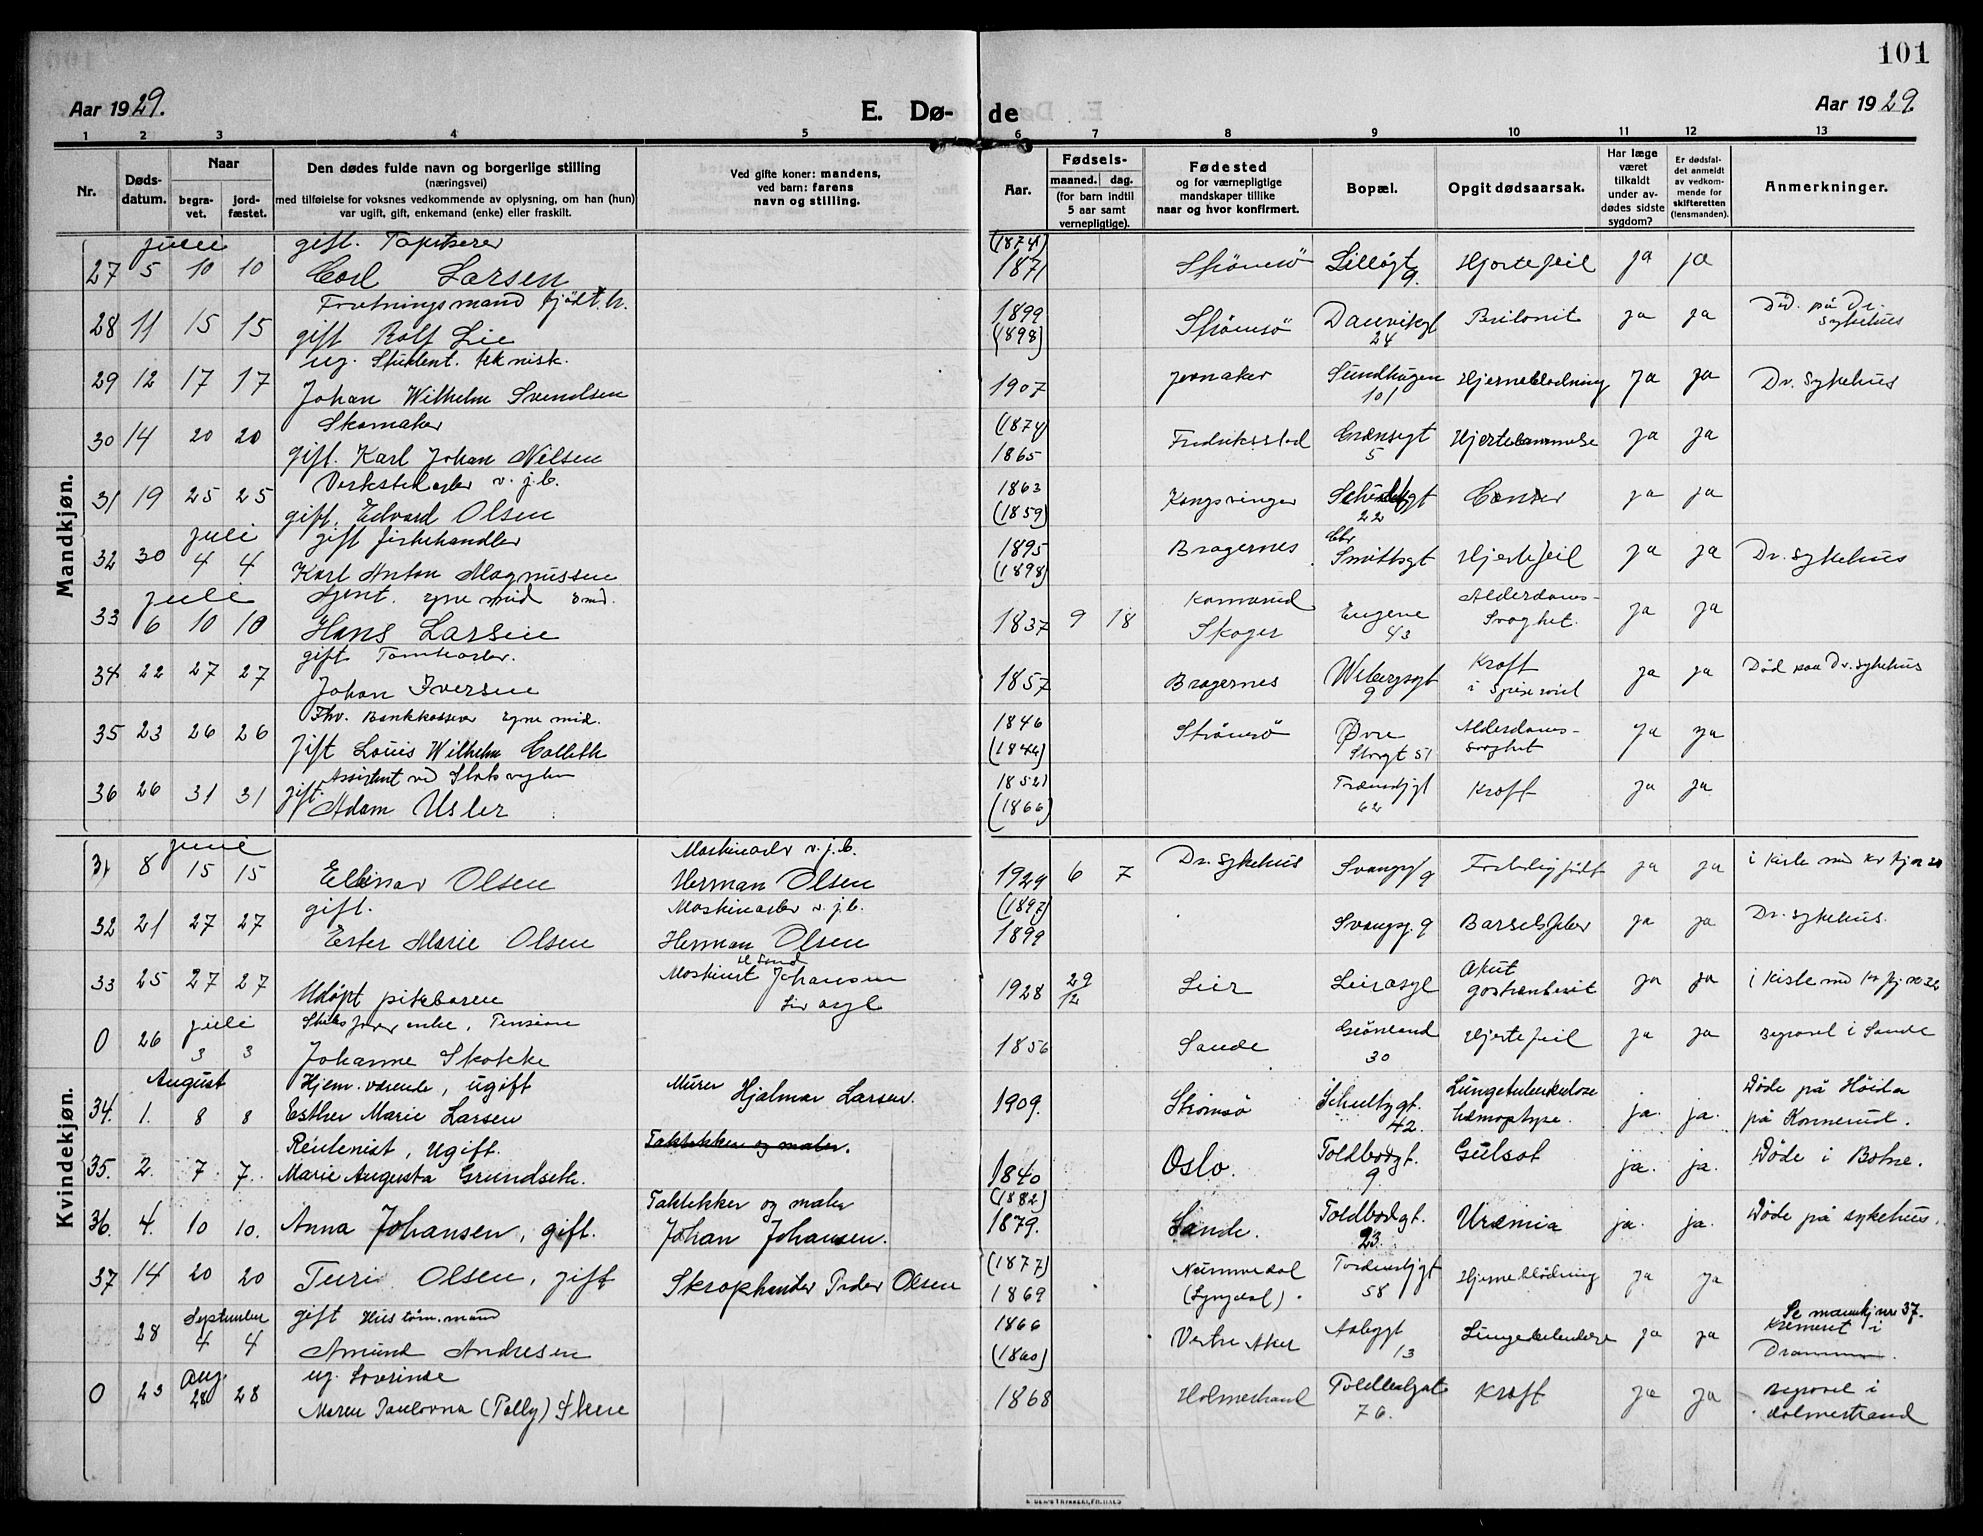 101
Aar 1929.
E. Dø-
de
Aar 1929.
1 2 3 4 5 6 7 8 9 10 11 12 13
Nr.
Døds-
datum.
Naar
begra-
vet.
jord-
fæstet.
Den dødes fulde navn og borgerlige stilling
(næringsvei)
med tilføielse for voksnes vedkommende av oplysning, om han (hun)
var ugift, gift, enkemand (enke) eller fraskilt.
Ved gifte koner: mandens,
ved barn: farens
navn og stilling.
Aar.
Fødsels-
maaned. dag.
(for barn indtil
5 aar samt
vernepligtige).
Fødested
og for værnepligtige
mandskaper tillike
naar og hvor konfirmert.
Bopæl.
Opgit dødsaarsak.
Har læge
været
tilkaldt
under av-
dødes sidste
sygdom?
Er dødsfal-
det anmeldt
av vedkom-
mende for
skifteretten
(lensmanden).
Anmerkninger.
Mandkjøn.
juli gift. Tapetserer (1874)
27 5 10 10 Carl Larsen 1871 Strömsö Lilløgt Hjertefeil ja ja
9.
Forretningsmand 1899 Død. på Dr.
28 11 15 15 gift Rolf Lie (1898) Strömsö Danvikgt ja ja sykehus
24
ug. Student. teknisk.
29 12 17 17 Johan Wilhelm Svendsen 1907 Jevnaker Sundhaugen Hjerneblødning ja ja Dr. sykehus
101
Skomaker (1874)
30 14 20 20 gift. Karl Johan Nilsen 1865 Fredriksstad Grænsegt Hjertelammelse ja ja
5
v. j.b. 1863
31 19 25 25 gift. Edvard Olsen (1859) Kongsvinger Schultzgt Canser ja ja
22
juli gift fiskehandler 1895 Chr
32 30 4 4 Karl Anton Magnussen (1898) Bragernes Smithsgt Hjertefeil ja ja Dr. sykehus
juli Agent. egne mid Alderdoms-
33 6 10 10 Hans Larsen 1837 9 18 Skoger Eugene svaghet. ja ja
43
gift Tomtearb. Kræft
34 22 27 27 Johan Iversen 1857 Bragernes Webergsgt i spiserøret ja ja Død paa Dr. sykehus
9
Fhv. Bankkasserer egne mid. 1846 Øvre Alderdoms-
35 23 26 26 gift Louis Wilhelm Colleth (1844) Strömsö Storgt 51 svaghet ja ja
Assistent ved 1852
36 26 31 31 gift. Adam Usler (1866) Kræft ja ja
62
Kvindekjøn.
juni Maskinarb v. j.b. Dr. sykehus
31 8 15 15 Ellinor Olsen Herman Olsen 1929 6 7 Svangsg 9 For tidlig født ja ja i kiste med
gift. Maskinarb v. j.b. (1897)
32 21 27 27 Ester Marie Olsen Herman Olsen 1899 Svangsg. 9 Barselsfeber ja ja Dr. sykehus.
33 25 27 27 Udøpt pikebarn Maskinist Johansen 1928 29/12 Lier Lierasyl Akut gastroenterit ja ja i kiste med
Lier asyl
juli enke, Pension Grönland
0 26 3 3 Johanne Skokke 1856 Sande 30 Hjertefeil ja ja begravel i Sande
August Hjem. værende, ugift Murer Lungetuberkulose Døde på Höida
34. 1. 8 8 Esther Marie Larsen Hjalmar Larsen. 1909. Strömsö Schultzgt. 42. hæmoptyse. ja. ja. på Konnerud.
Rentenist, ugift. Taktekker og maler.
35. 2. 7 7. Marie Augusta Grundseth. 1840 Oslo. Toldbodgt. 9 Gulsot ja. ja. Døde i Botne.
Taktekker og maler (1882)
36. 4. 10 10. Anna Johansen, gift. Johan Johansen. 1879. Sande. Toldbodgt. 23. Uræmia ja. ja. Døde på sykehus.
(1877) Nummedal
37 14 20 20 Turi Olsen, gift Skraphandler Peder Olsen 1869 (Lyngdal). Tordenskjgt 58 Hjerneblödning ja ja
September gift 1866 Se mannkj nr 37.
28 4 4 Amund Andresen (1860) Vestre Aker 13 Lungetuberkulose ja ja Kremert i Drammen.
Aug. ug. Loverinde
0 23 28 28 Maren Paulovna (Polly) Skree 1868 Holmestrand 76. Kræft ja ja Begravel i
Holmestrand